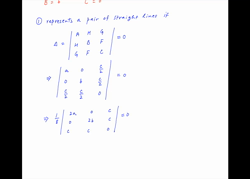 ① represents a pair of straight lines if
Δ = | A H G | = 0
| H B F |
| G F C |
⇒ | a 0 c/2 | = 0
| 0 b c/2 |
| c/2 c/2 0 |
⇒ 1/8 | 2a 0 c | = 0
| 0 2b c |
| c c 0 |